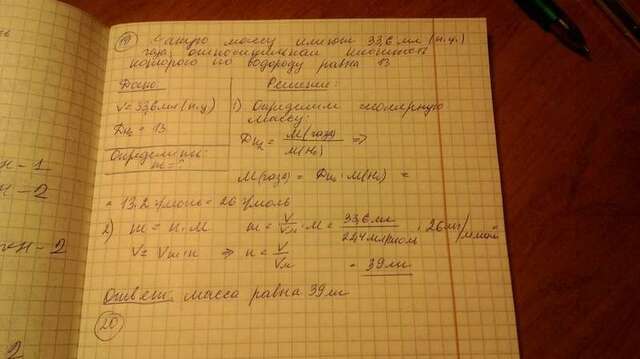 19 Какую массу имеют 33,6 мл (н.у.)
газа, относительная плотность
которого по водороду равна 13
Дано:
V = 33,6 мл (н.у)
Дн₂ = 13
Определить:
m = ?
Решение:
1) Определим молярную
массу:
Дн₂ = М(газа) / М(Н₂) ⇒
М(газа) = Дн₂ · М(Н₂) =
= 13·2 г/моль = 26 г/моль
2) m = n · M m = V/Vм · М = 33,6 мл / 22,4 мл/ммоль · 26 мг/ммоль
V = Vm · n ⇒ n = V/Vм = 39 мг
Ответ: масса равна 39 мг
20
н - 1
н - 2
н - 2
2